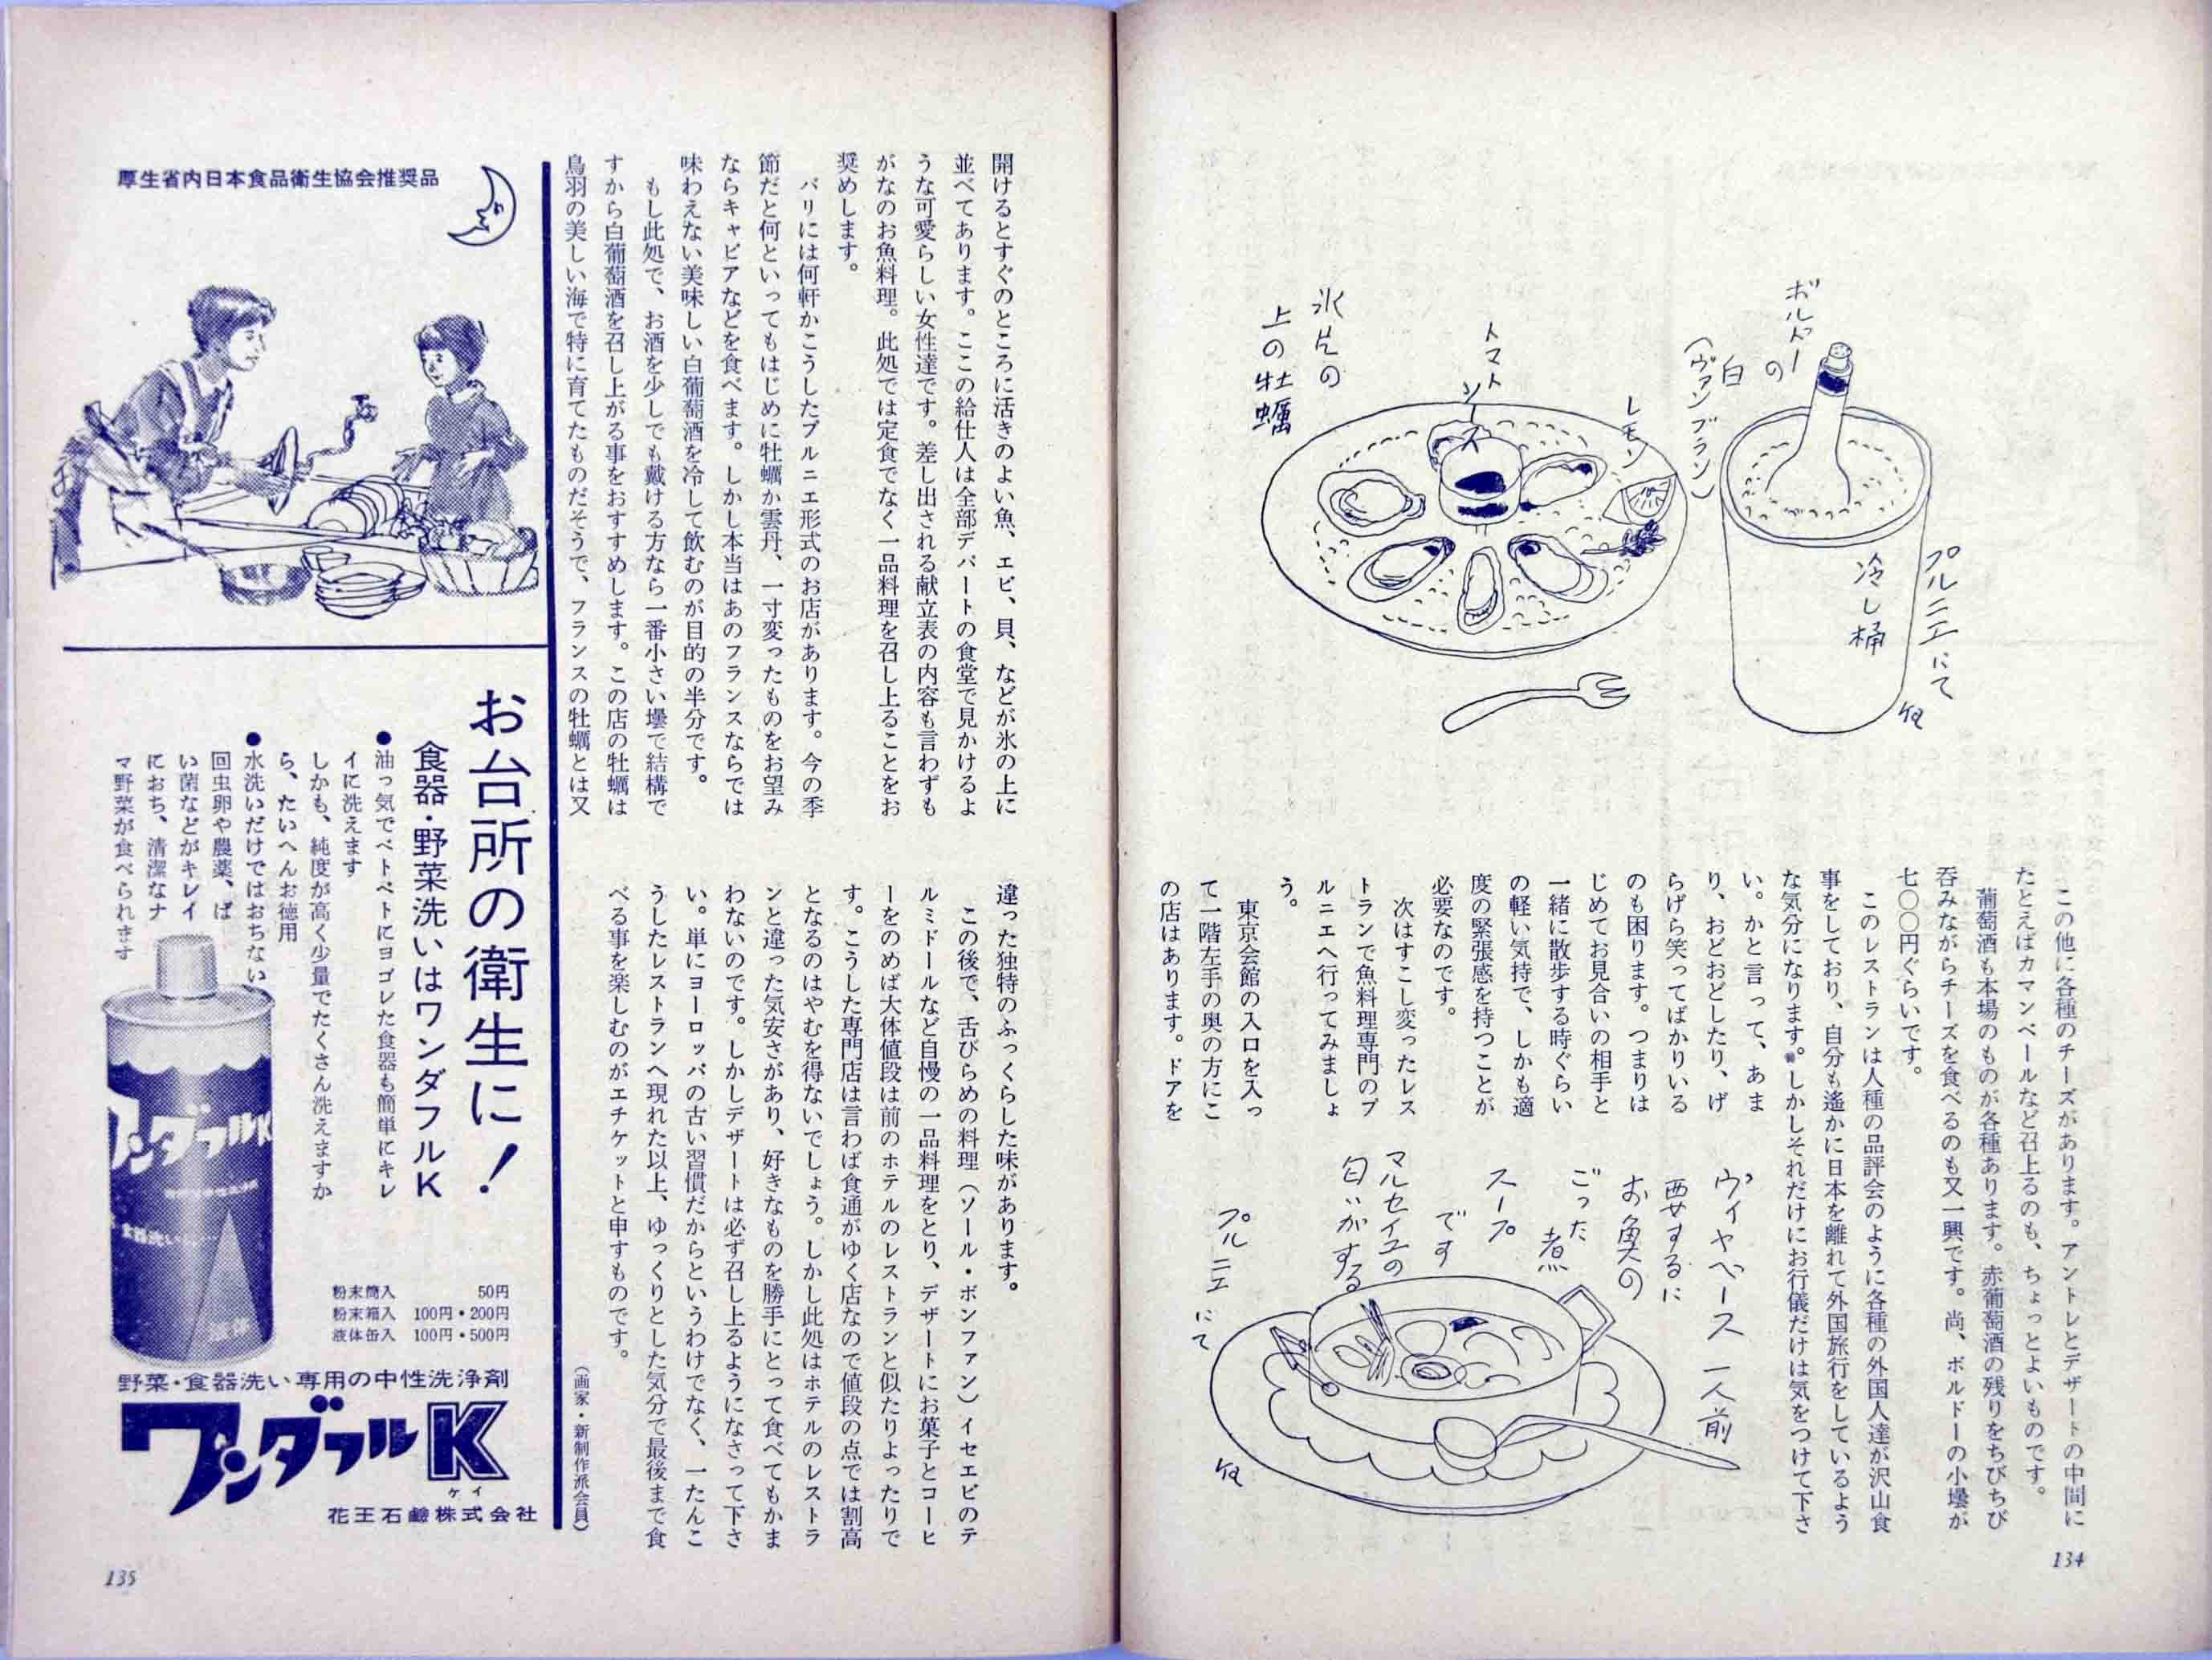 ボルドーの
白
(ヴァンブラン)
プルニエにて
冷し桶
レモン
トマト
ソース
氷片の
上の牡蠣
この他に各種のチーズがあります。アントレとデザートの中間に
たとえばカマンベールなど召上るのも、ちょっとよいものです。
葡萄酒も本場のものが各種あります。赤葡萄酒の残りをちびちび
呑みながらチーズを食べるのも又一興です。尚、ボルドーの小壜が
七〇〇円ぐらいです。
このレストランは人種の品評会のように各種の外国人達が沢山食
事をしており、自分も遙かに日本を離れて外国旅行をしているよう
な気分になります。しかしそれだけにお行儀だけは気をつけて下さ
い。かと言って、あま
り、おどおどしたり、げ
らげら笑ってばかりいる
のも困ります。つまりは
じめてお見合いの相手と
一緒に散歩する時ぐらい
の軽い気持で、しかも適
度の緊張感を持つことが
必要なのです。
次はすこし変ったレス
トランで魚料理専門のプ
ルニエへ行ってみましょ
う。
東京会館の入口を入っ
て一階左手の奥の方にこ
の店はあります。ドアを
ヴィヤベース 一人前
要するに
お魚の
ごった
煮
スープ
です
マルセイユの
匂いがする
プルニエにて
134
開けるとすぐのところに活きのよい魚、エビ、貝、などが氷の上に
並べてあります。ここの給仕人は全部デパートの食堂で見かけるよ
うな可愛らしい女性達です。差し出される献立表の内容も言わずも
がなのお魚料理。此処では定食でなく一品料理を召し上ることをお
奨めします。
パリには何軒かこうしたプルニエ形式のお店があります。今の季
節だと何といってもはじめに牡蠣か雲丹、一寸変ったものをお望み
ならキャビアなどを食べます。しかし本当はあのフランスならでは
味わえない美味しい白葡萄酒を冷して飲むのが目的の半分です。
もし此処で、お酒を少しでも戴ける方なら一番小さい壜で結構で
すから白葡萄酒を召し上がる事をおすすめします。この店の牡蠣は
鳥羽の美しい海で特に育てたものだそうで、フランスの牡蠣とは又
違った独特のふっくらした味があります。
この後で、舌びらめの料理(ソール・ボンファン)イセエビのテ
ルミドールなど自慢の一品料理をとり、デザートにお菓子とコーヒ
ーをのめば大体値段は前のホテルのレストランと似たりよったりで
す。こうした専門店は言わば食通がゆく店なので値段の点では割高
となるのはやむを得ないでしょう。しかし此処はホテルのレストラ
ンと違った気安さがあり、好きなものを勝手にとって食べてもかま
わないのです。しかしデザートは必ず召し上るようになさって下さ
い。単にヨーロッパの古い習慣だからというわけでなく、一たんこ
うしたレストランへ現れた以上、ゆっくりとした気分で最後まで食
べる事を楽しむのがエチケットと申すものです。
(画家・新制作派会員)
厚生省内日本食品衛生協会推奨品
お台所の衛生に!
食器・野菜洗いはワンダフルK
●油っ気でベトベトにヨゴレた食器も簡単にキレ
イに洗えます
しかも、純度が高く少量でたくさん洗えますか
ら、たいへんお徳用
●水洗いだけではおちない
回虫卵や農薬、ば
い菌などがキレイ
におち、清潔なナ
マ野菜が食べられます
ワンダフルK
粉末筒入 50円
粉末箱入 100円・200円
液体缶入 100円・500円
野菜・食器洗い専用の中性洗浄剤
ワンダフルK
ケイ
花王石鹼株式会社
135